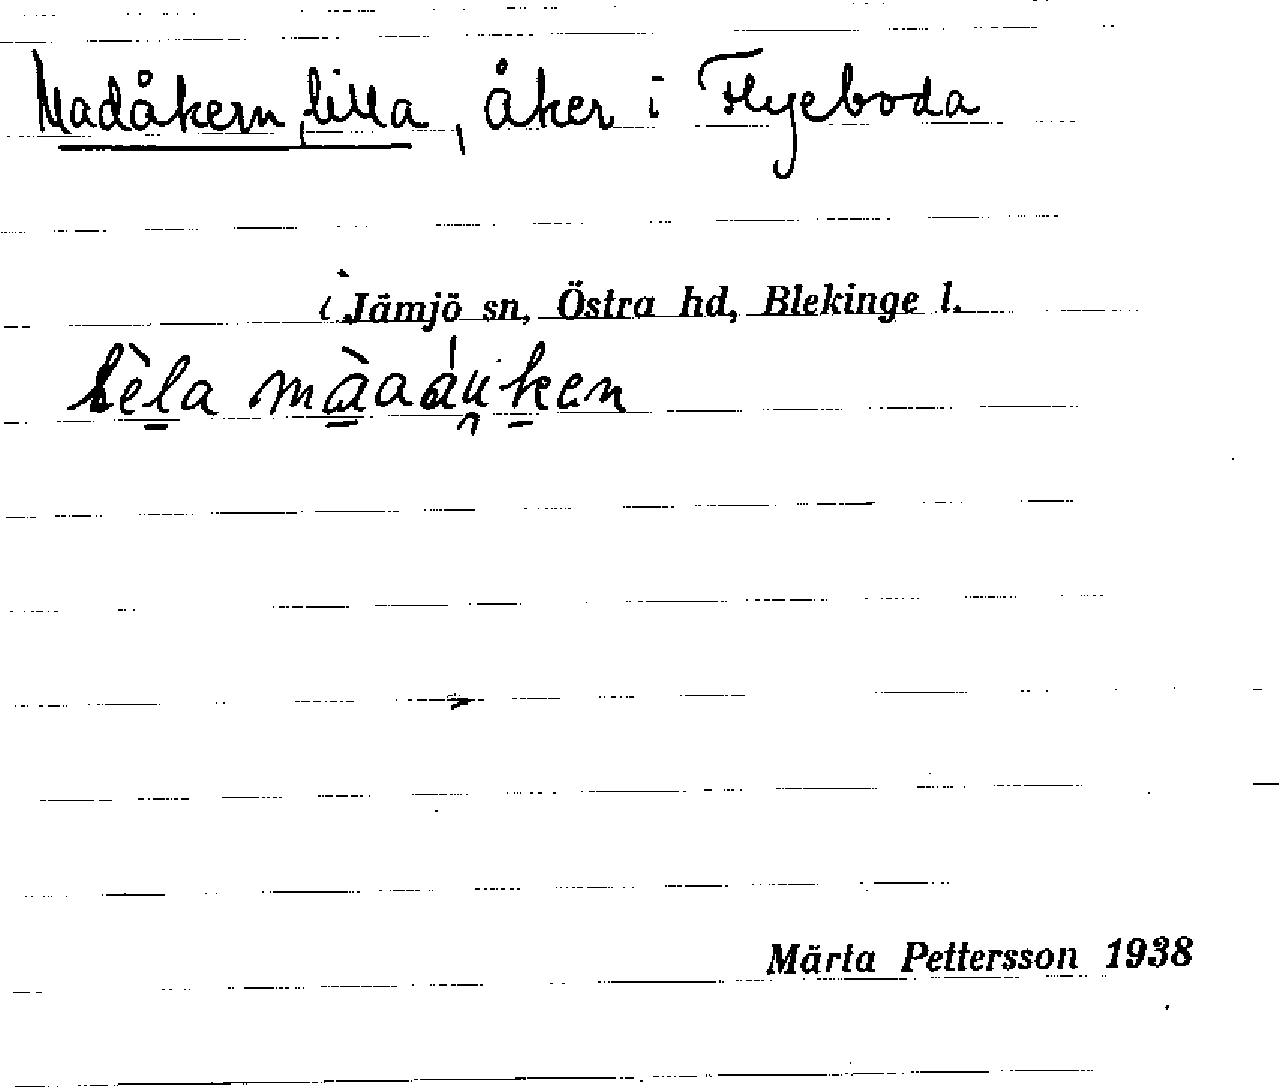 Madåkern, lilla, åker i Flyeboda
i Jämjö sn, Östra hd, Blekinge l.
lèla màaáu̯ken
Märta Pettersson 1938